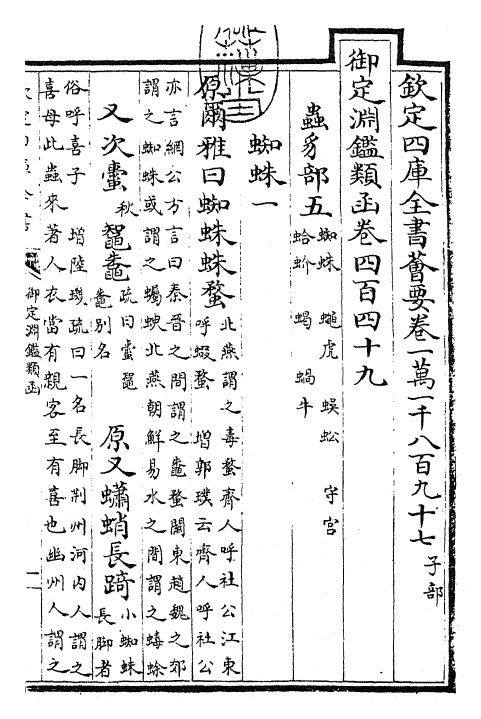 欽定四庫全書薈要卷一萬一千八百九十七 子部
御定淵鑑類函卷四百四十九
蟲豸部五 蜘蛛 蠅虎 蜈蚣 守宮
蛤蚧 蝎 蝸牛
蜘蛛一
原爾雅曰蜘蛛蛛蝥 北燕謂之毒蝥齊人呼社公江東
呼蝃蝥 增郭璞云齊人呼社公
亦言網公方言曰秦晉之間謂之鼄蝥關東趙魏之郊
謂之蜘蛛或謂之蠾蝓北燕朝鮮易水之間謂之蝳蜍
又次蟗 秋 鼅鼄 疏曰蟗鼅
鼄別名 原又蠨蛸長踦 小蜘蛛
長脚者
俗呼喜子 增陸璣疏曰一名長脚荆州河内人謂之
喜母此蟲來著人衣當有親客至有喜也幽州人謂之
御定淵鑑類函
一